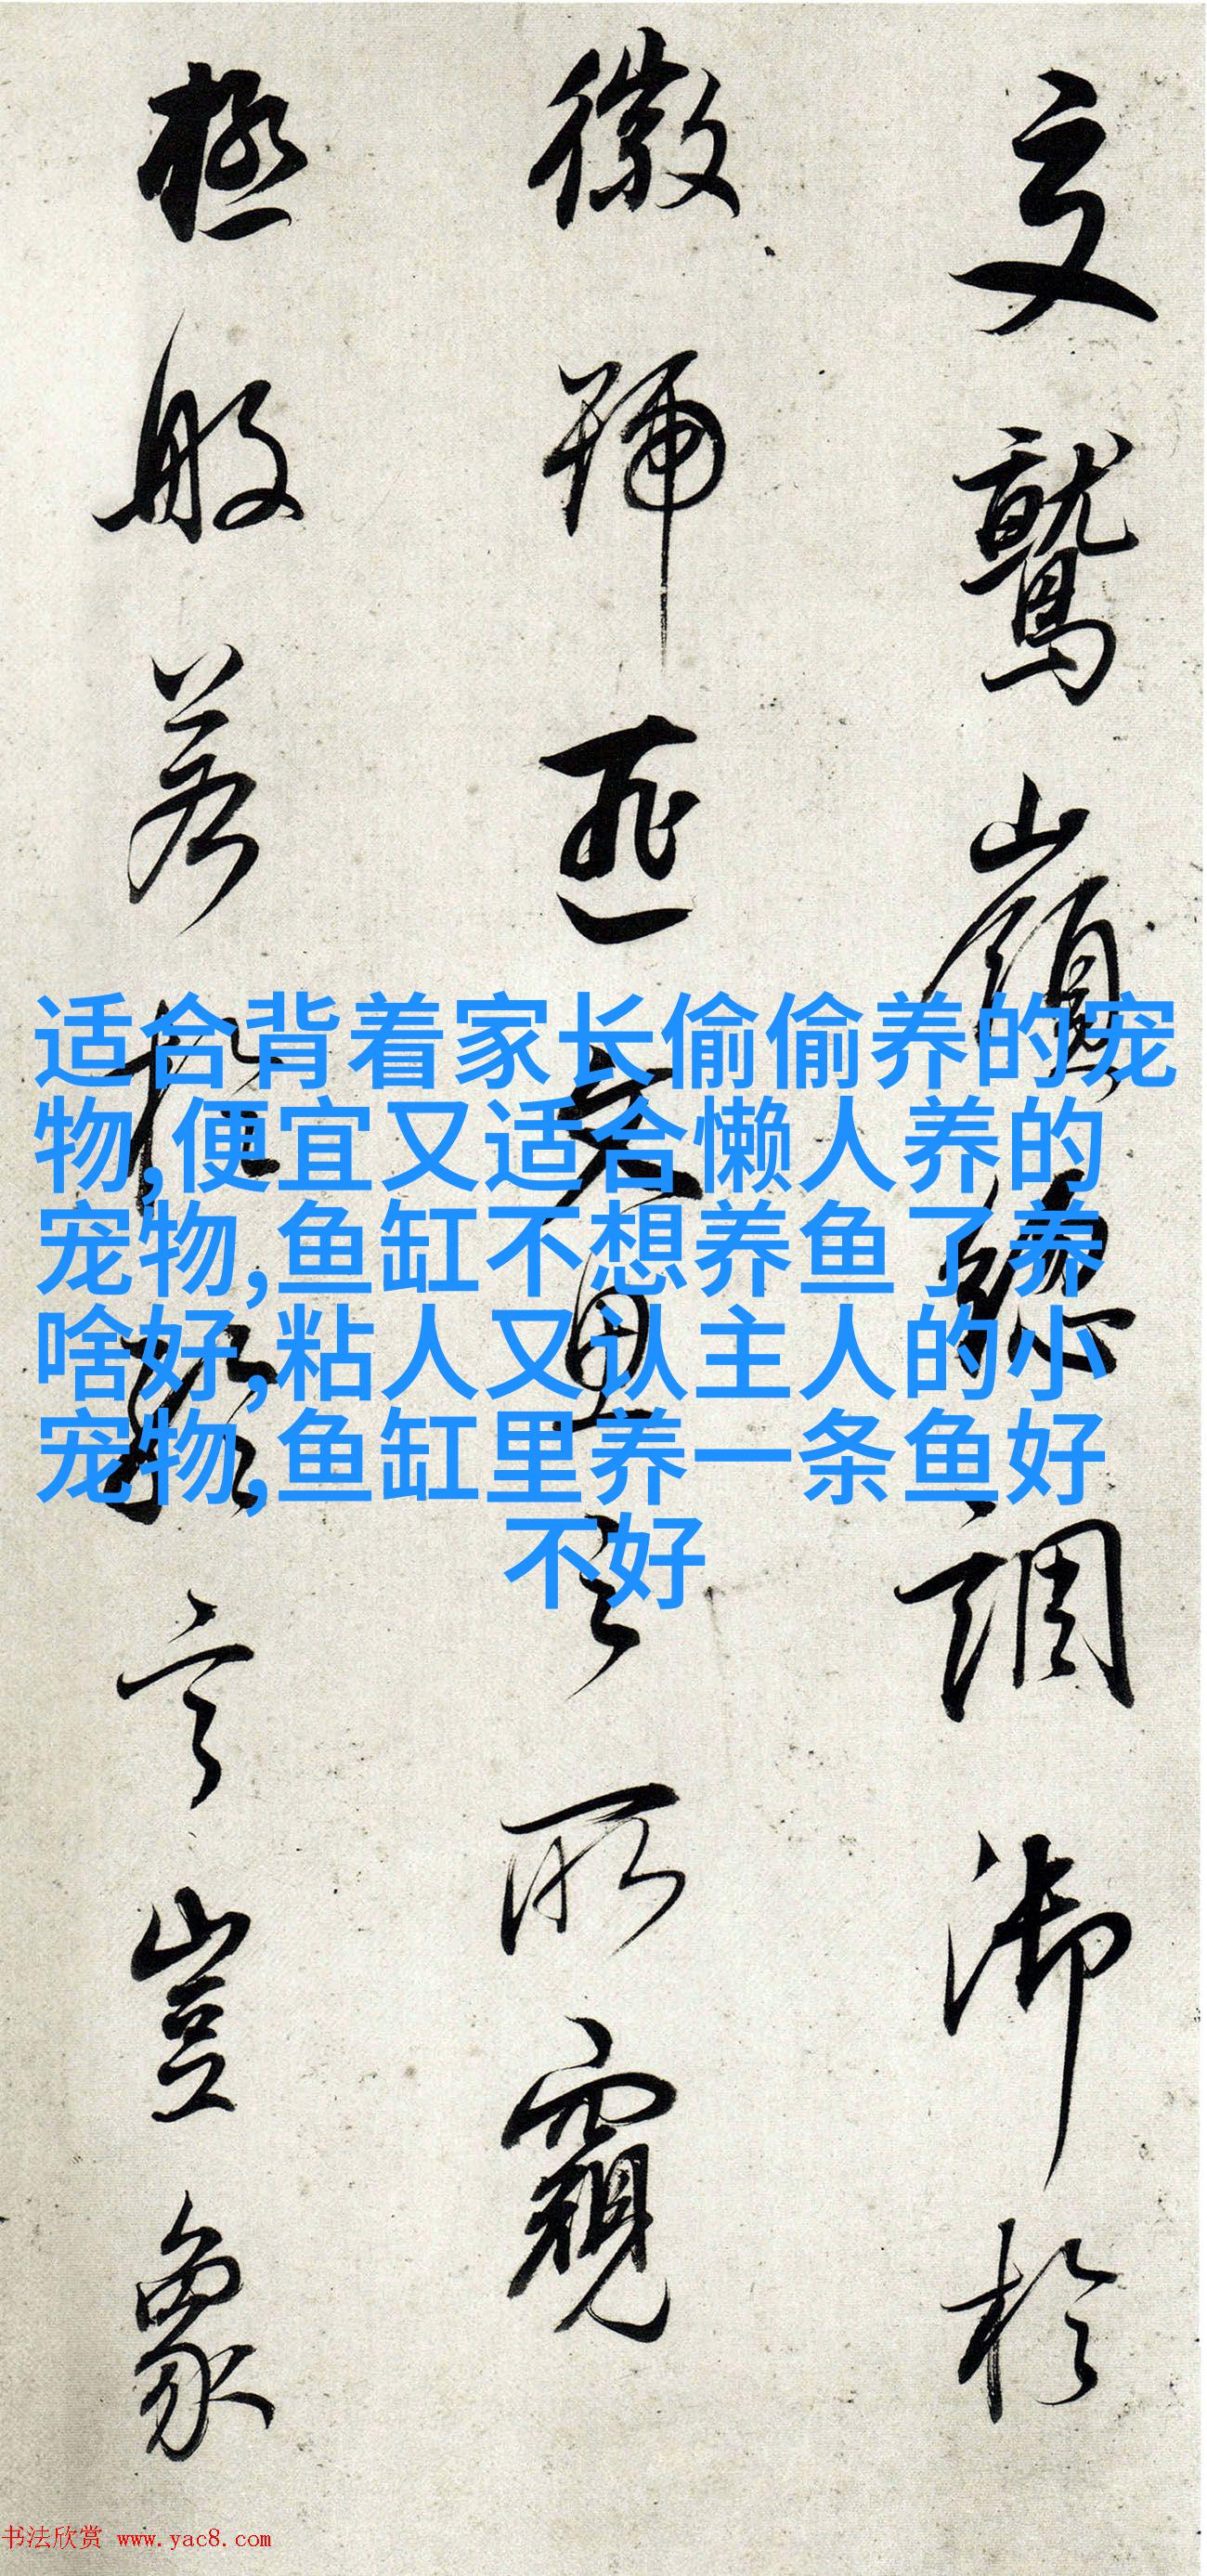 文鷲嶺總調御於
徽號匪文思之所窺
極般若
言豈象
适合背着家长偷偷养的宠
物,便宜又适合懒人养的
宠物,鱼缸不想养鱼了养
啥好,粘人又认主人的小
宠物,鱼缸里养一条鱼好
不好
书法欣赏 www.yac8.com